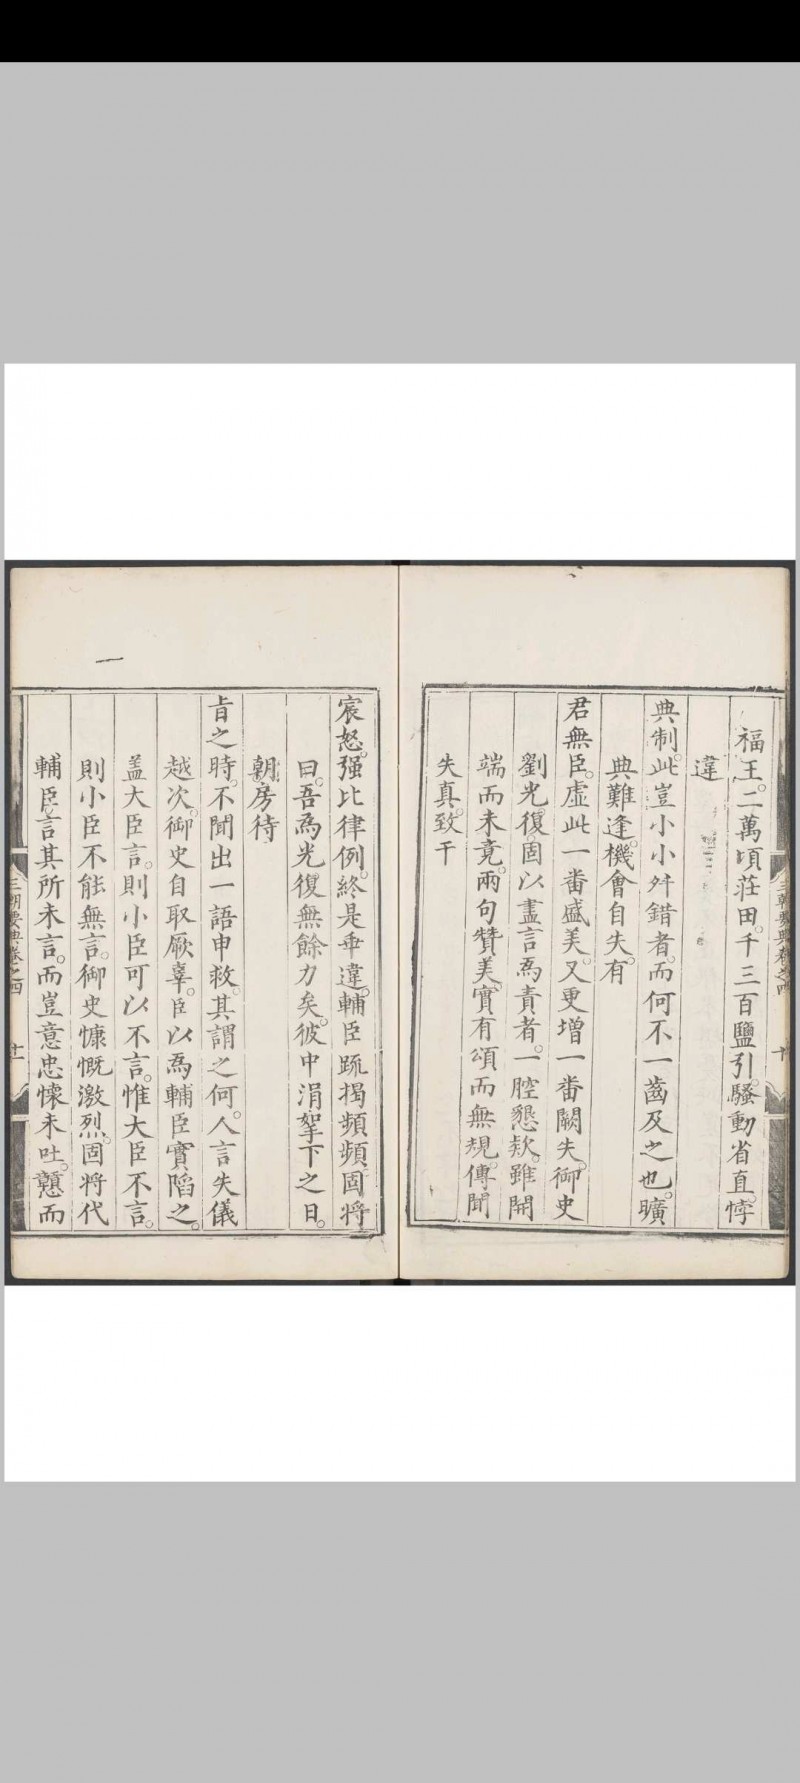 福王。二萬頃莊田。千三百鹽引。騷動省直。悖
違
典制。此豈小小舛錯者。而何不一齒及之也。曠
典難逢。機會自失。有
君無臣。虛此一番盛美。又更增一番闕失。御史
劉光復。固以盡言爲責者。一腔懇欵。雖開
端而未竟。兩句贊美。實有頌而無規。傳聞
失真。致干
三朝要典卷之四
十
宸怒。强比律例。終是乖違。輔臣䟽揭頻頻。固將
曰。吾爲光復無餘力矣。彼中涓拏下之日。
朝房待
旨之時。不聞出一語申救。其謂之何。人言失儀
越次。御史自取厥辜。臣以爲輔臣實陷之。
盖大臣言。則小臣可以不言。惟大臣不言。
則小臣不能無言。御史慷慨激烈。固將代
輔臣言其所未言。而豈意忠懷未吐。戇而
三朝要典卷之四
十一